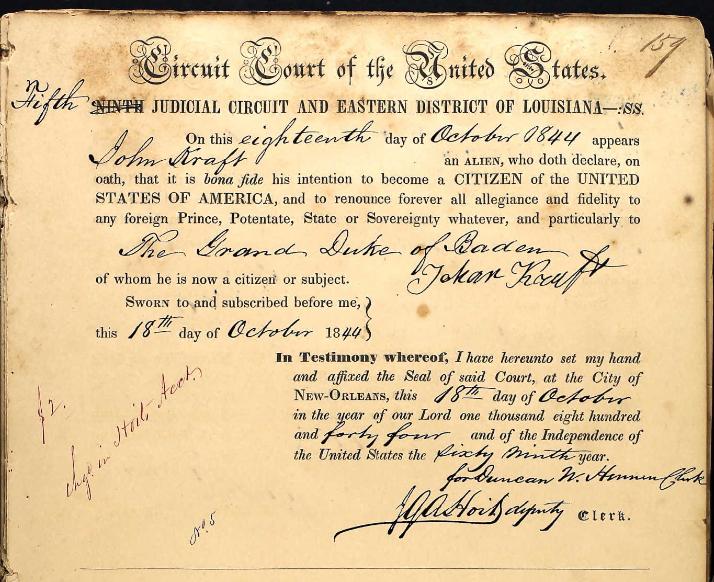 159
Circuit Court of the United States.
Fifth
NINTH JUDICIAL CIRCUIT AND EASTERN DISTRICT OF LOUISIANA—:SS.
On this eighteenth day of October 1844 appears
John Kraft an ALIEN, who doth declare, on
oath, that it is bona fide his intention to become a CITIZEN of the UNITED
STATES OF AMERICA, and to renounce forever all allegiance and fidelity to
any foreign Prince, Potentate, State or Sovereignty whatever, and particularly to
The Grand Duke of Baden
of whom he is now a citizen or subject. Kraft
SWORN to and subscribed before me,}
this 18th day of October 1844}
In Testimony whereof, I have hereunto set my hand
and affixed the Seal of said Court, at the City of
NEW-ORLEANS, this 18th day of October
in the year of our Lord one thousand eight hundred
and forty four and of the Independence of
the United States the Sixty Ninth year.
for Duncan N. Hennen Clerk
deputy Clerk.
$2.
in Hoits Acct.
No. 5